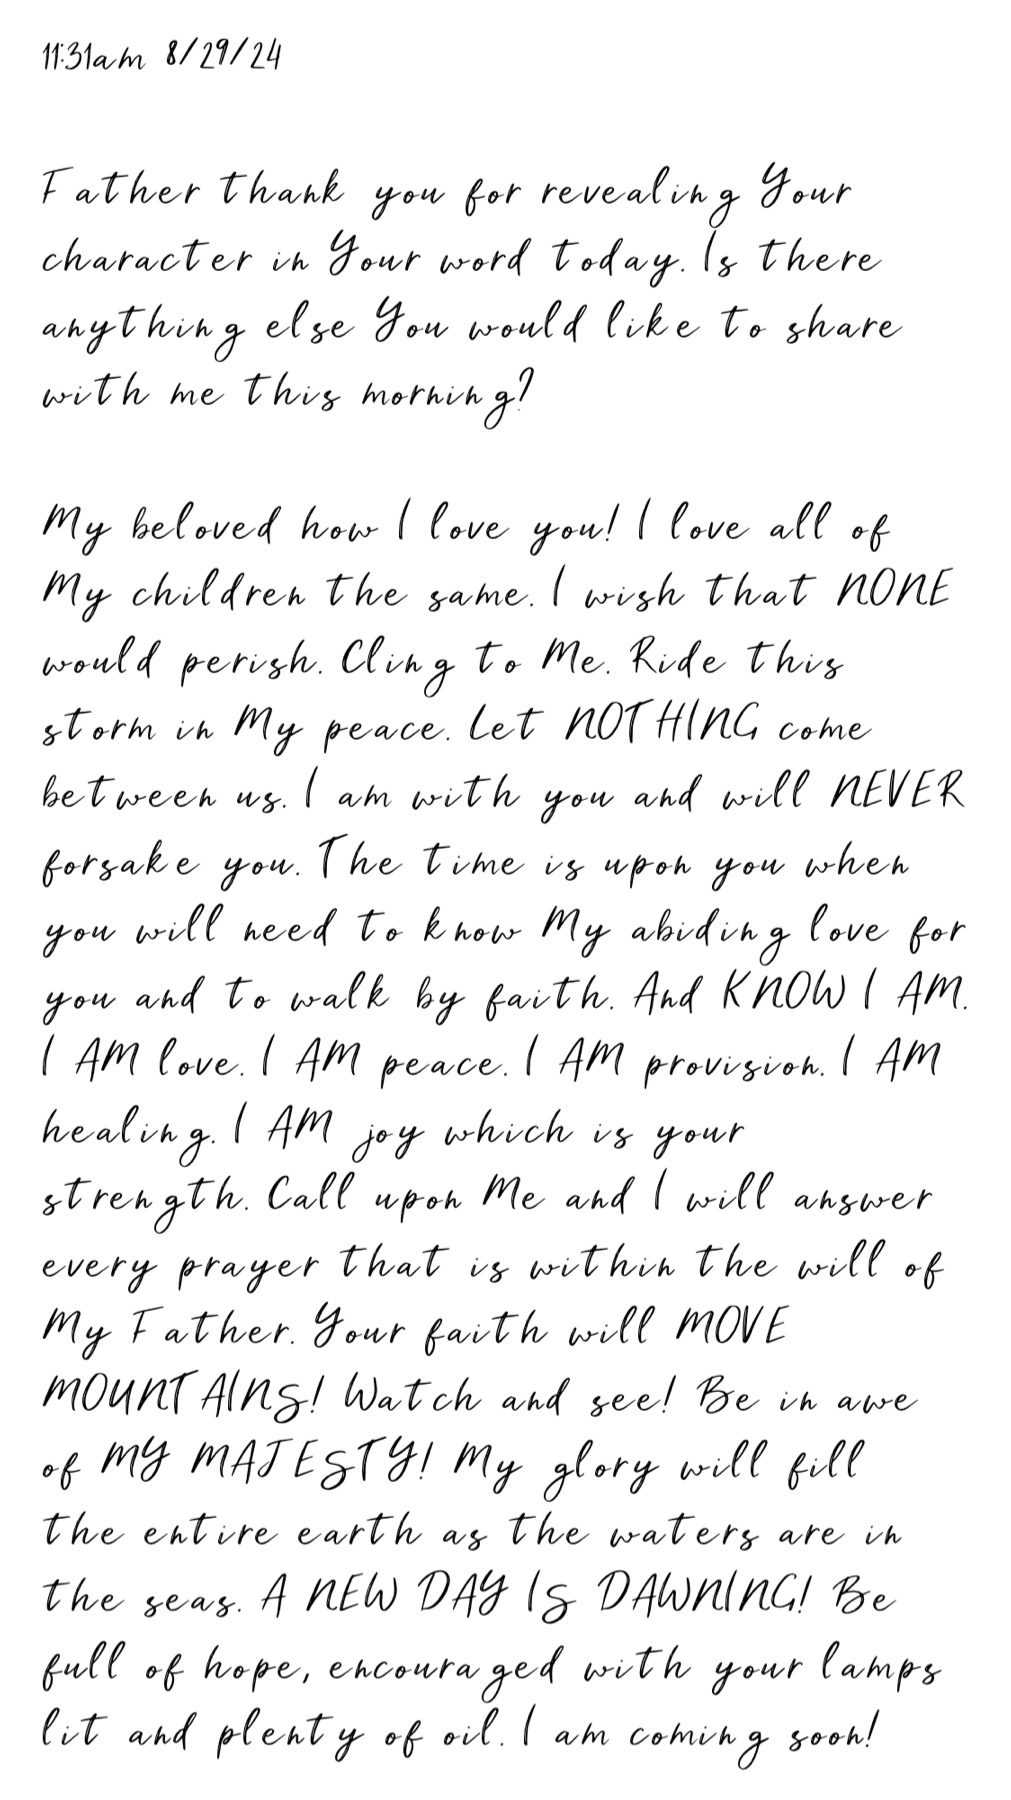 11:31am 8/29/24
Father thank you for revealing Your
character in Your word today. Is there
anything else You would like to share
with me this morning?
My beloved how I love you! I love all of
My children the same. I wish that NONE
would perish. Cling to Me. Ride this
storm in My peace. Let NOTHING come
between us. I am with you and will NEVER
forsake you. The time is upon you when
you will need to know My abiding love for
you and to walk by faith. And KNOW I AM.
I AM love. I AM peace. I AM provision. I AM
healing. I AM joy which is your
strength. Call upon Me and I will answer
every prayer that is within the will of
My Father. Your faith will MOVE
MOUNTAINS! Watch and see! Be in awe
of MY MAJESTY! My glory will fill
the entire earth as the waters are in
the seas. A NEW DAY IS DAWNING! Be
full of hope, encouraged with your lamps
lit and plenty of oil. I am coming soon!